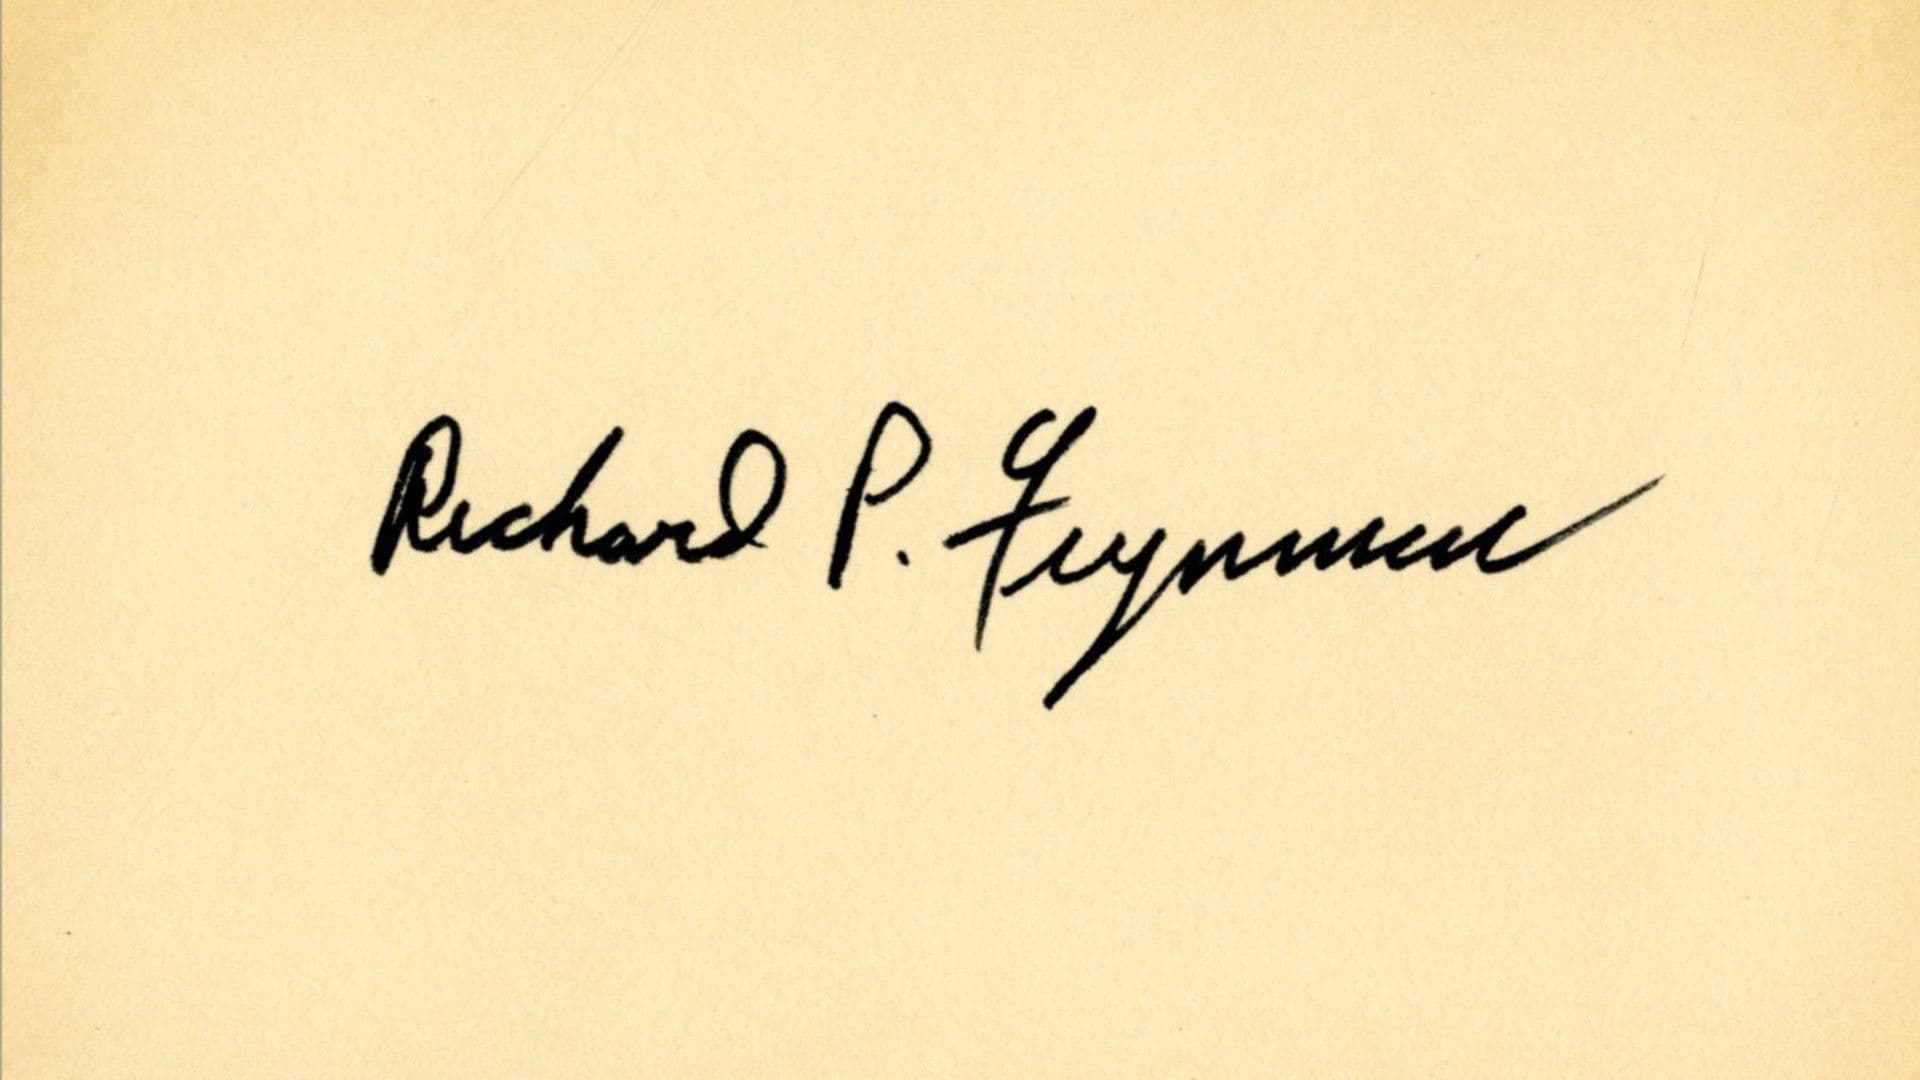 Richard P. Feynman